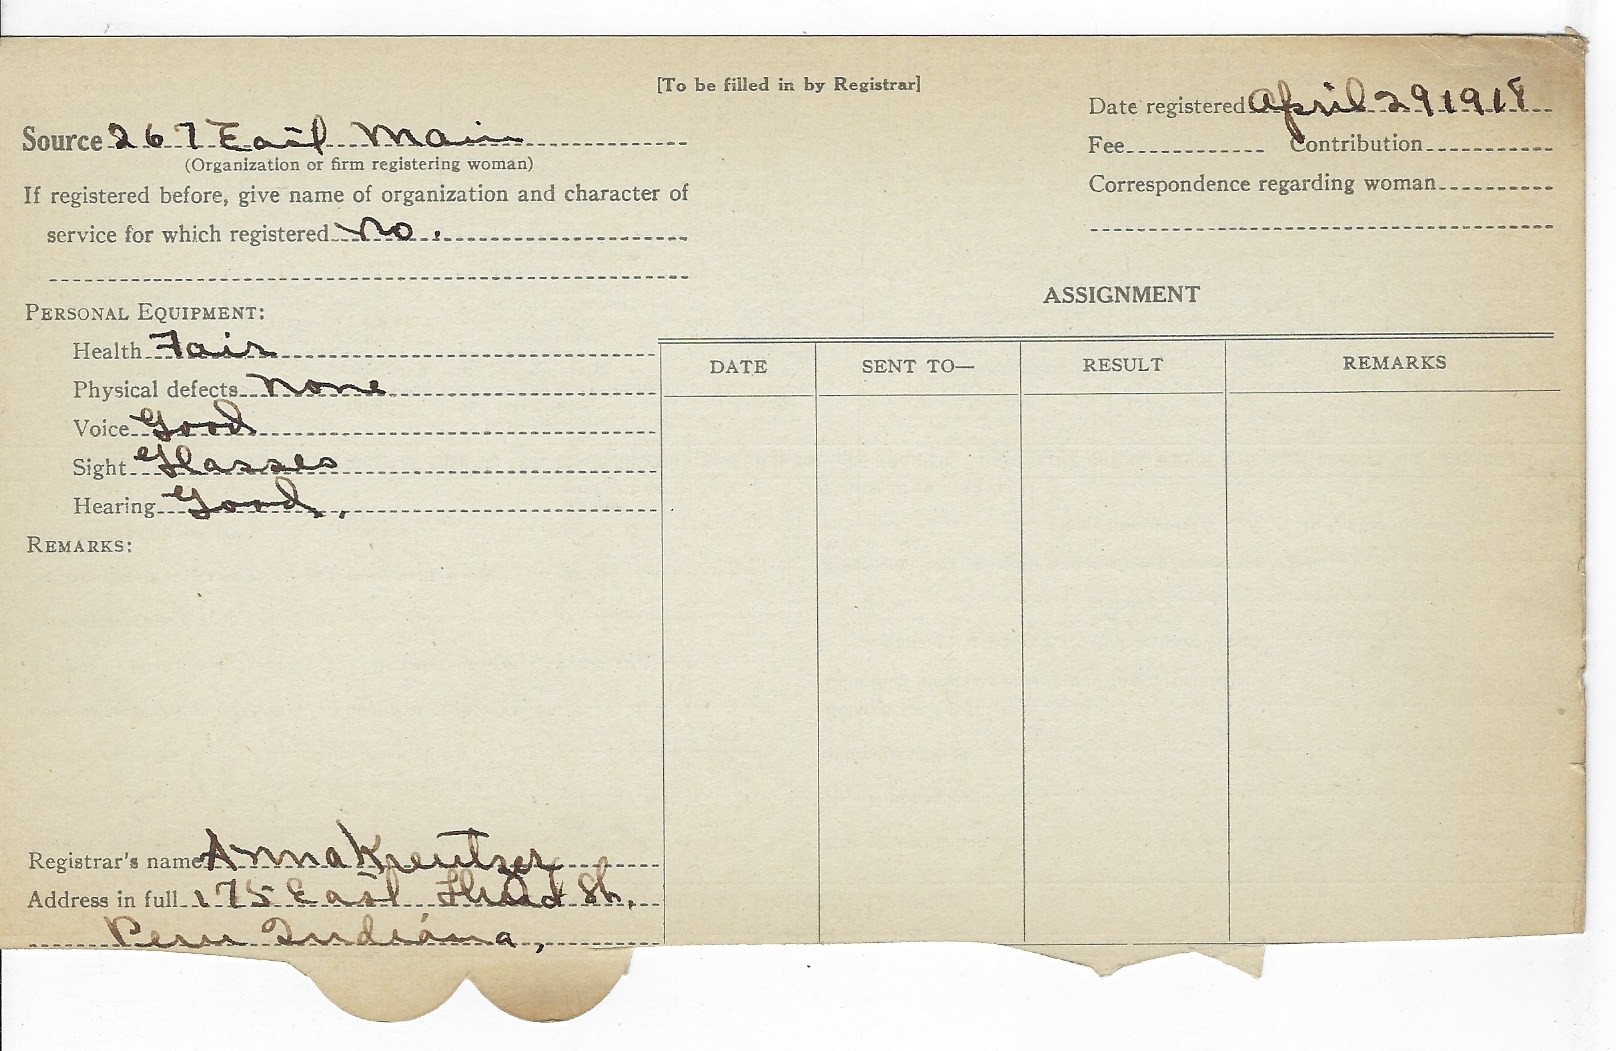 [To be filled in by Registrar]
Date registered April 29 1918
Source 267 East Main
(Organization or firm registering woman)
Fee Contribution
If registered before, give name of organization and character of
Correspondence regarding woman
service for which registered No.
ASSIGNMENT
PERSONAL EQUIPMENT:
Health Fair
DATE SENT TO— RESULT REMARKS
Physical defects None
Voice Good
Sight Glasses
Hearing Good.
REMARKS:
Registrar's name Anna Kreutzer
Address in full 175 East Third St.
Peru Indiana,